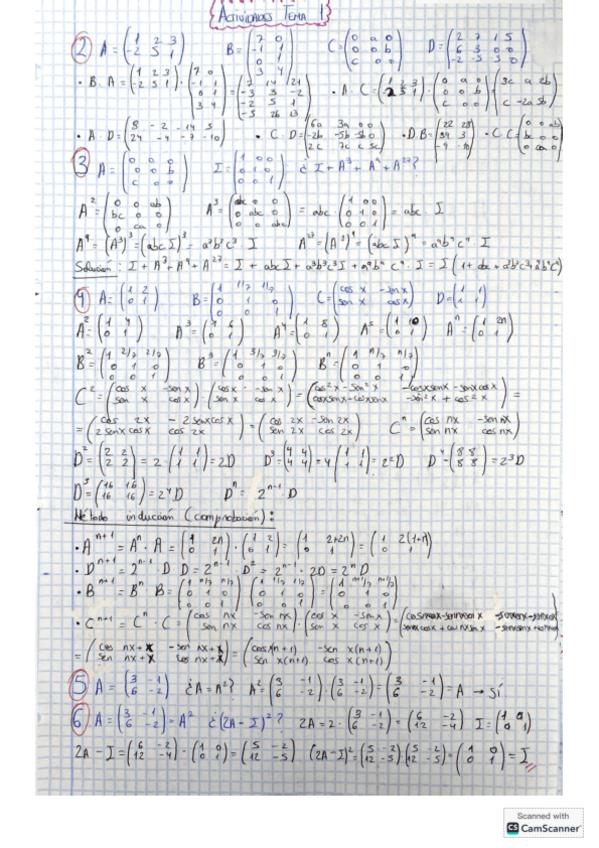 Actividades Tema 1
2 A = (1 2 3 / -2 5 1) B = (7 0 / -1 1 / 0 1 / 3 4) C = (0 a 0 / 0 0 b / c 0 0) D = (2 7 1 5 / 6 3 0 0 / -2 -5 5 0)
• B·A = (1 2 3 / -2 5 1) · (7 0 / -1 1 / 0 1 / 3 4) = (7 14 21 / -3 3 -2 / -2 5 1 / -5 26 13) • A·C = (1 2 3 / 2 5 1) · (0 a 0 / 0 0 b / c 0 0) = (3c a 2b / c -2a 5b)
• A·D = (8 -2 -14 5 / 24 -4 -7 -10) • C·D = (6a 3a 0 0 / -2b -5b 5b 0 / 2c 7c c 5c) • D·B = (22 28 / 34 3 / -9 -10) • C·C = (0 0 ab / bc 0 0 / 0 ca 0)
3 A = (0 a 0 / 0 0 b / c 0 0) I = (1 0 0 / 0 1 0 / 0 0 1) ¿ I + A³ + A⁹ + A²⁷?
A² = (0 0 ab / bc 0 0 / 0 ca 0) A³ = (abc 0 0 / 0 abc 0 / 0 0 abc) = abc · (1 0 0 / 0 1 0 / 0 0 1) = abc · I
A⁹ = (A³)³ = (abc I)³ = a³b³c³ · I A²⁷ = (A³)⁹ = (abc I)⁹ = a⁹b⁹c⁹ · I
Solución: I + A³ + A⁹ + A²⁷ = I + abc I + a³b³c³ I + a⁹b⁹c⁹ · I = I (1 + abc + a³b³c³ + a⁹b⁹c⁹)
4 A = (1 2 / 0 1) B = (1 1/7 1/7 / 0 1 0 / 0 0 1) C = (cos x -sen x / sen x cos x) D = (1 1 / 1 1)
A² = (1 4 / 0 1) A³ = (1 6 / 0 1) A⁴ = (1 8 / 0 1) A⁵ = (1 10 / 0 1) Aⁿ = (1 2n / 0 1)
B² = (1 2/7 2/7 / 0 1 0 / 0 0 1) B³ = (1 3/7 3/7 / 0 1 0 / 0 0 1) Bⁿ = (1 n/7 n/7 / 0 1 0 / 0 0 1)
C² = (cos x -sen x / sen x cos x) · (cos x -sen x / sen x cos x) = (cos² x - sen² x -cosx senx - senx cosx / cosx senx + cosx senx -sen² x + cos² x) =
= (cos 2x -2 senx cos x / 2 senx cos x cos 2x) = (cos 2x -sen 2x / sen 2x cos 2x) Cⁿ = (cos nx -sen nx / sen nx cos nx)
D² = (2 2 / 2 2) = 2 · (1 1 / 1 1) = 2D D³ = (4 4 / 4 4) = 4 (1 1 / 1 1) = 2² D D⁴ = (8 8 / 8 8) = 2³ D
D⁵ = (16 16 / 16 16) = 2⁴ D Dⁿ = 2ⁿ⁻¹ · D
Método inducción (comprobación):
• Aⁿ⁺¹ = Aⁿ · A = (1 2n / 0 1) · (1 2 / 0 1) = (1 2+2n / 0 1) = (1 2(1+n) / 0 1)
• Dⁿ⁺¹ = 2ⁿ⁻¹ · D · D = 2ⁿ⁻¹ · D² = 2ⁿ⁻¹ · 2D = 2ⁿ D
• Bⁿ⁺¹ = Bⁿ B = (1 n/7 n/7 / 0 1 0 / 0 0 1) (1 1/7 1/7 / 0 1 0 / 0 0 1) = (1 n+1/7 n+1/7 / 0 1 0 / 0 0 1)
• Cⁿ⁺¹ = Cⁿ · C = (cos nx -sen nx / sen nx cos nx) · (cos x -sen x / sen x cos x) =
= (cos nx+x -sen nx+x / sen nx+x cos nx+x) = (cos x(n+1) -sen x(n+1) / sen x(n+1) cos x(n+1))
5 A = (3 -1 / 6 -2) ¿A = A²? A² = (3 -1 / 6 -2) · (3 -1 / 6 -2) = (3 -1 / 6 -2) = A → Sí
6 A = (3 -1 / 6 -2) = A² ¿(2A - I)²? 2A = 2 · (3 -1 / 6 -2) = (6 -2 / 12 -4) I = (1 0 / 0 1)
2A - I = (6 -2 / 12 -4) - (1 0 / 0 1) = (5 -2 / 12 -5) (2A-I)² = (5 -2 / 12 -5) (5 -2 / 12 -5) = (1 0 / 0 1) = I
Scanned with
CS CamScanner